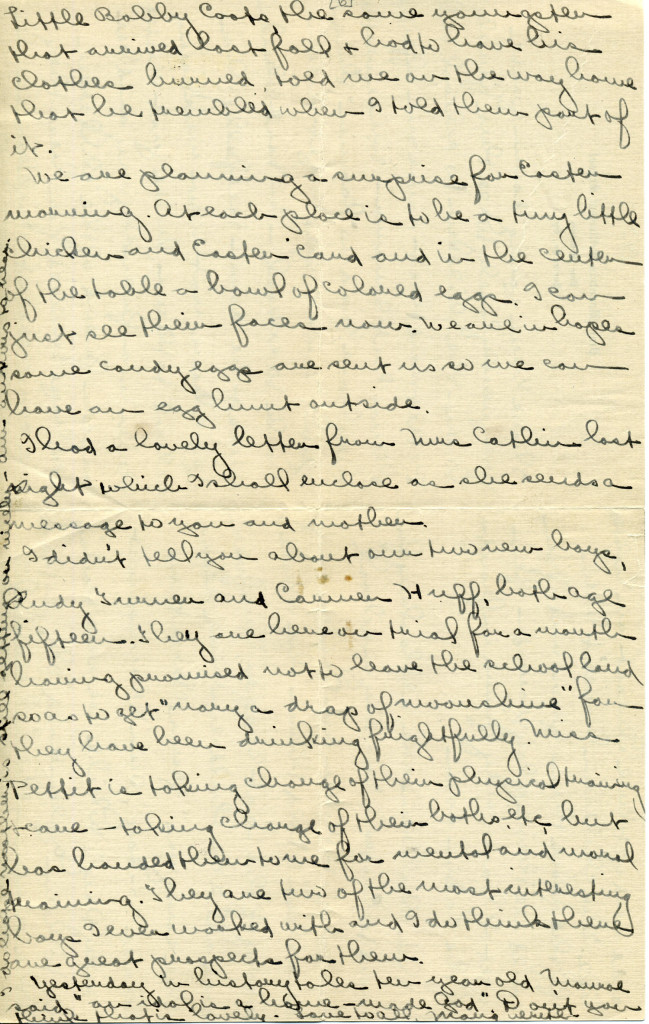 [6]
Little Bobby Coots, the same youngster
that arrived last fall & had to have his
clothes burned, told me on the way home
that he trembled when I told them part of
it.
We are planning a surprise for Easter
morning. At each place is to be a tiny little
chicken and Easter card and in the center
of the table a bowl of colored eggs. I can
just see their faces now. We are in hopes
some candy eggs are sent us so we can
have an egg hunt outside.
I had a lovely letter from Mrs Catlin last
night which I shall enclose as she sends a
message to you and mother.
I didn't tell you about our two new boys,
Andy Turner and Carmen Huff, both age
fifteen. They are here on trial for a month
having promised not to leave the school land
so as to get "nary a drap of moonshine" for
they have been drinking frightfully. Miss
Pettit is taking charge of their physical training
care – taking charge of their baths, etc, but
has handed them to me for mental and moral
training. They are two of the most interesting
boys I ever worked with and I do think there
are great prospects for them.
Yesterday in history tales ten year old Monroe
said "an idol is a home-made God" Don't you
think that is lovely. Love to all,